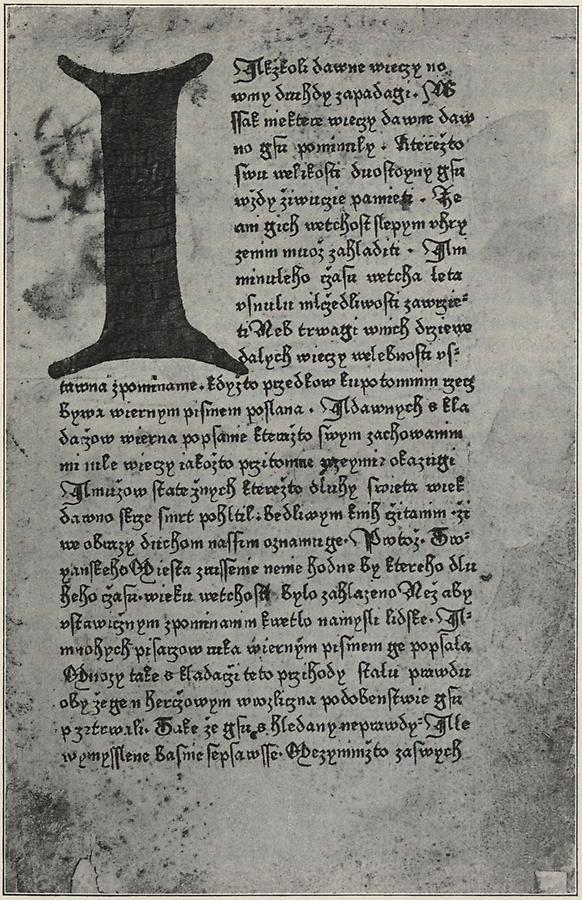 I
Ačžkoli dawne wieczy no
wny druhdy zapadagi. W
ssak niektere wieczy dawne daw
no gsu pominuly. Kterežto
swu welikosti duostoyny gsu
wždy žiwucie pamieti. Že
ani gich wetchost slepym vhry
zenim muož zahladiti. Ani
minuleho čzasu wetcha leta
vsnulu mlčedliwosti zawrzie-
ti Neb trwagi wnich drziewe
dalych wieczy welebnosti vs-
tawna zpominanie. kdyžto przedkow kupotomnim rzecz
bywa wiernym pismem poslana. A dawnych skla
daczow wierna popsanie kterežto swym zachowanim
mi nule wieczy iakožto przitomne okazugi
A mužow statečžnych kterežto dluhy swieta wiek
dawno skrze smrt pohltil. bedliwym knih čžitanim. ži
we obrazy duchom nassim oznamuge. Protož. Tro-
yanskeho Miesta zrussenie nenie hodne by ktereho dlu
heho čzasu. wieku wetchost bylo zahlazeno Než aby
vstawičznym zpominanim kwetlo namysli lidske. A
mnohych pisarzow ruka wiernym pismem ge popsala
Mnozy take skladačzi teto przihody stalu prawdu
oby žegen herčzowym wrozlična podobenstwie gsu
przetrwali. Take že gsu s hledany neprawdy. Ale
wymysslene basnie sepsawsse. Mezy nimižto zaswych